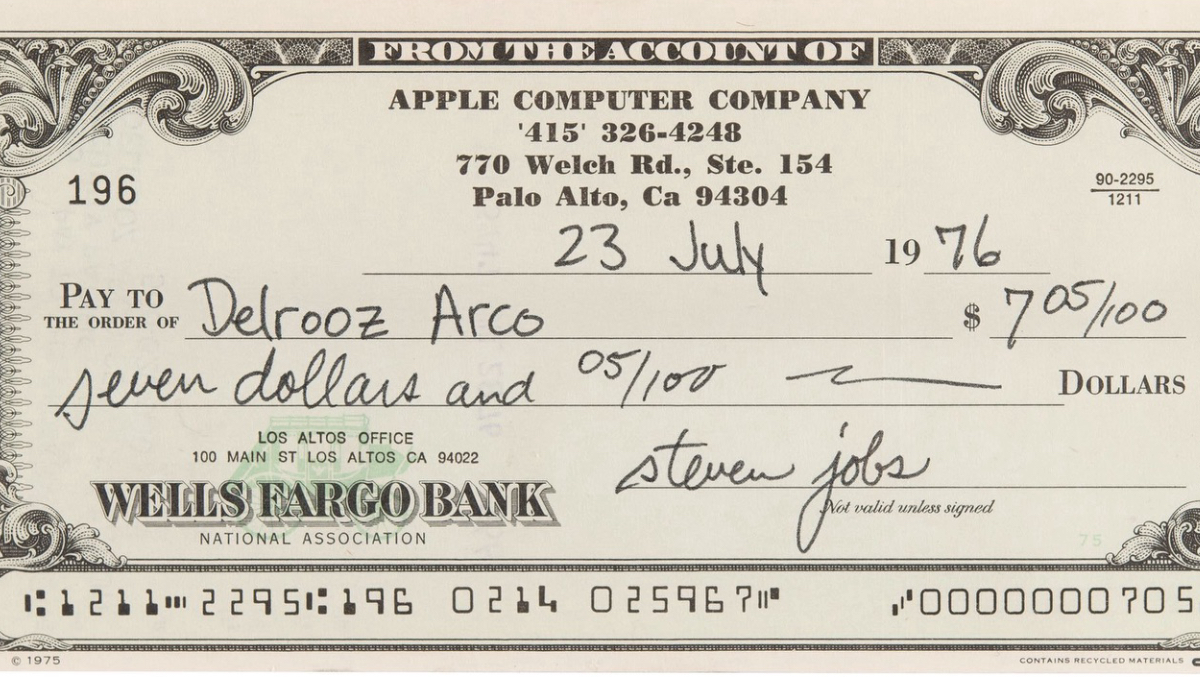 FROM THE ACCOUNT OF
APPLE COMPUTER COMPANY
'415' 326-4248
770 Welch Rd., Ste. 154
Palo Alto, Ca 94304
196
90-2295
1211
23 July 1976
PAY TO
THE ORDER OF Delrooz Arco $ 7 05/100
seven dollars and 05/100 DOLLARS
LOS ALTOS OFFICE
100 MAIN ST LOS ALTOS CA 94022
WELLS FARGO BANK
NATIONAL ASSOCIATION
steven jobs
Not valid unless signed
75
⑆1211⑉2295⑆196 0214 025967⑈ ⑇0000000705
© 1975
CONTAINS RECYCLED MATERIALS